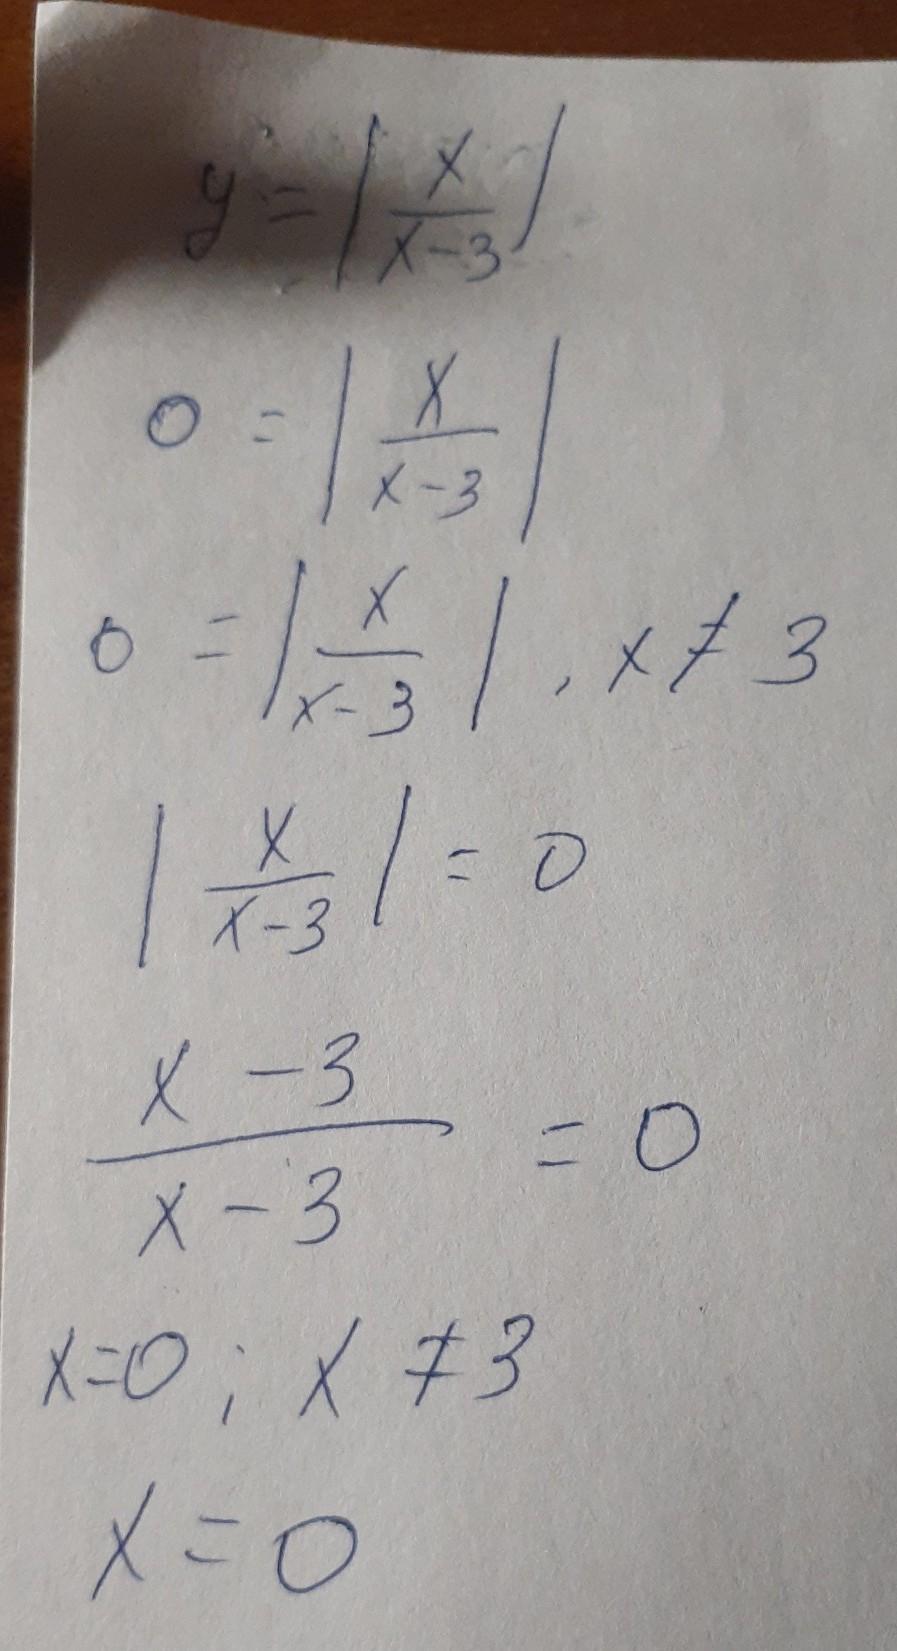 y = |x/(x-3)|
0 = |x/(x-3)|
0 = |x/(x-3)|, x ≠ 3
|x/(x-3)| = 0
(x-3)/(x-3) = 0
x=0; x ≠ 3
x = 0